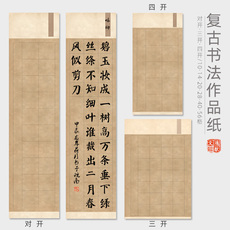 四开
复古书法作品纸
对开/三开/四开/10/14/20/28/40/56格
碧玉妆成一树高万条垂下绿
丝绦不知细叶谁裁出二月春
风似剪刀
对开
三开